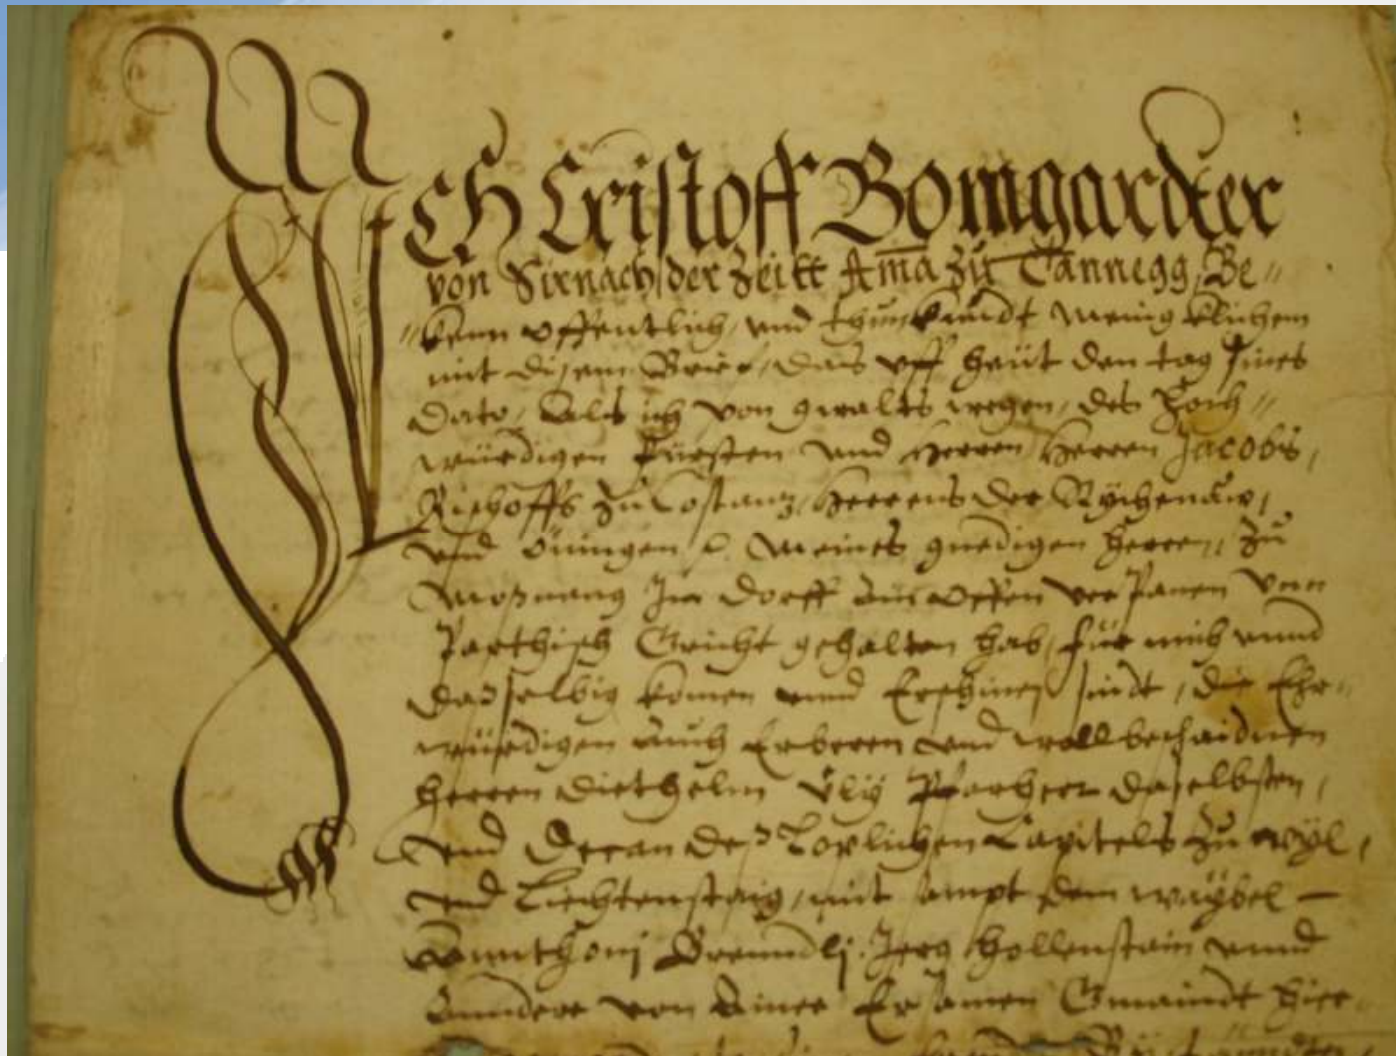 Ich Cristoff Bomgardter
von Sirnach, der Zeitt Ama zu Tannegg, Be //
// kenn offentlich, und thun kundt menigklichem
mit disem Brief, das uff heüt den tag sines
Dato, Als ich von gwalts wegen, des Hoch //
würdigen Fürsten und Herren Herren Jacobs,
Bischoffs zu Costantz, Herrens der Rychenaw,
und Öningen meines gnedigen Herren, zu
Moßnang Im Dorff offen
Gricht gehalten hab, für mich unnd
daßselbig komen unnd Erschinen sindt, die Ehr //
würdigen auch Erberen und wollbeschaidnen
Herren Diethelm Üly Pfarherr daselbsten,
und Decan deß Loblichen Capitels zu Wyl,
und Liechtenstaig, mit sampt dem waybel –
Jerg Hollenstain unnd
anndere von Einer Ersamen Gmaindt hier